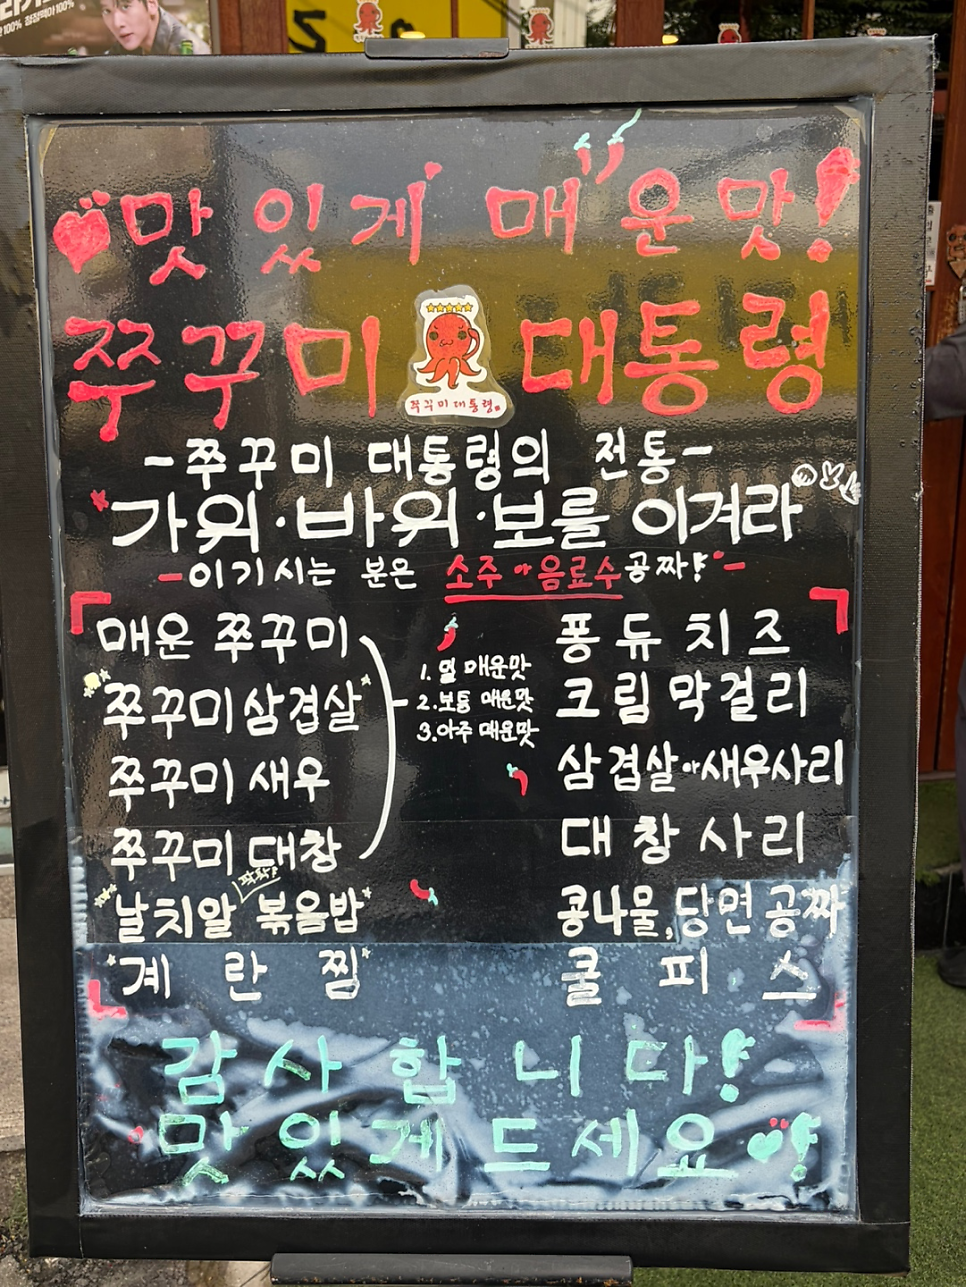 맛있게 매운맛!
쭈꾸미 대통령
쭈꾸미대통령
-쭈꾸미 대통령의 전통-
"가위·바위·보를 이겨라"
-이기시는 분은 소주 or 음료수 공짜!-
매운 쭈꾸미
쭈꾸미삼겹살
쭈꾸미 새우
쭈꾸미 대창
날치알 볶음밥
계란찜
1. 덜 매운맛
2. 보통 매운맛
3. 아주 매운맛
퐁듀치즈
크림막걸리
삼겹살 or 새우사리
대창사리
콩나물,당면 공짜
쿨피스
감사합니다!
맛있게드세요!